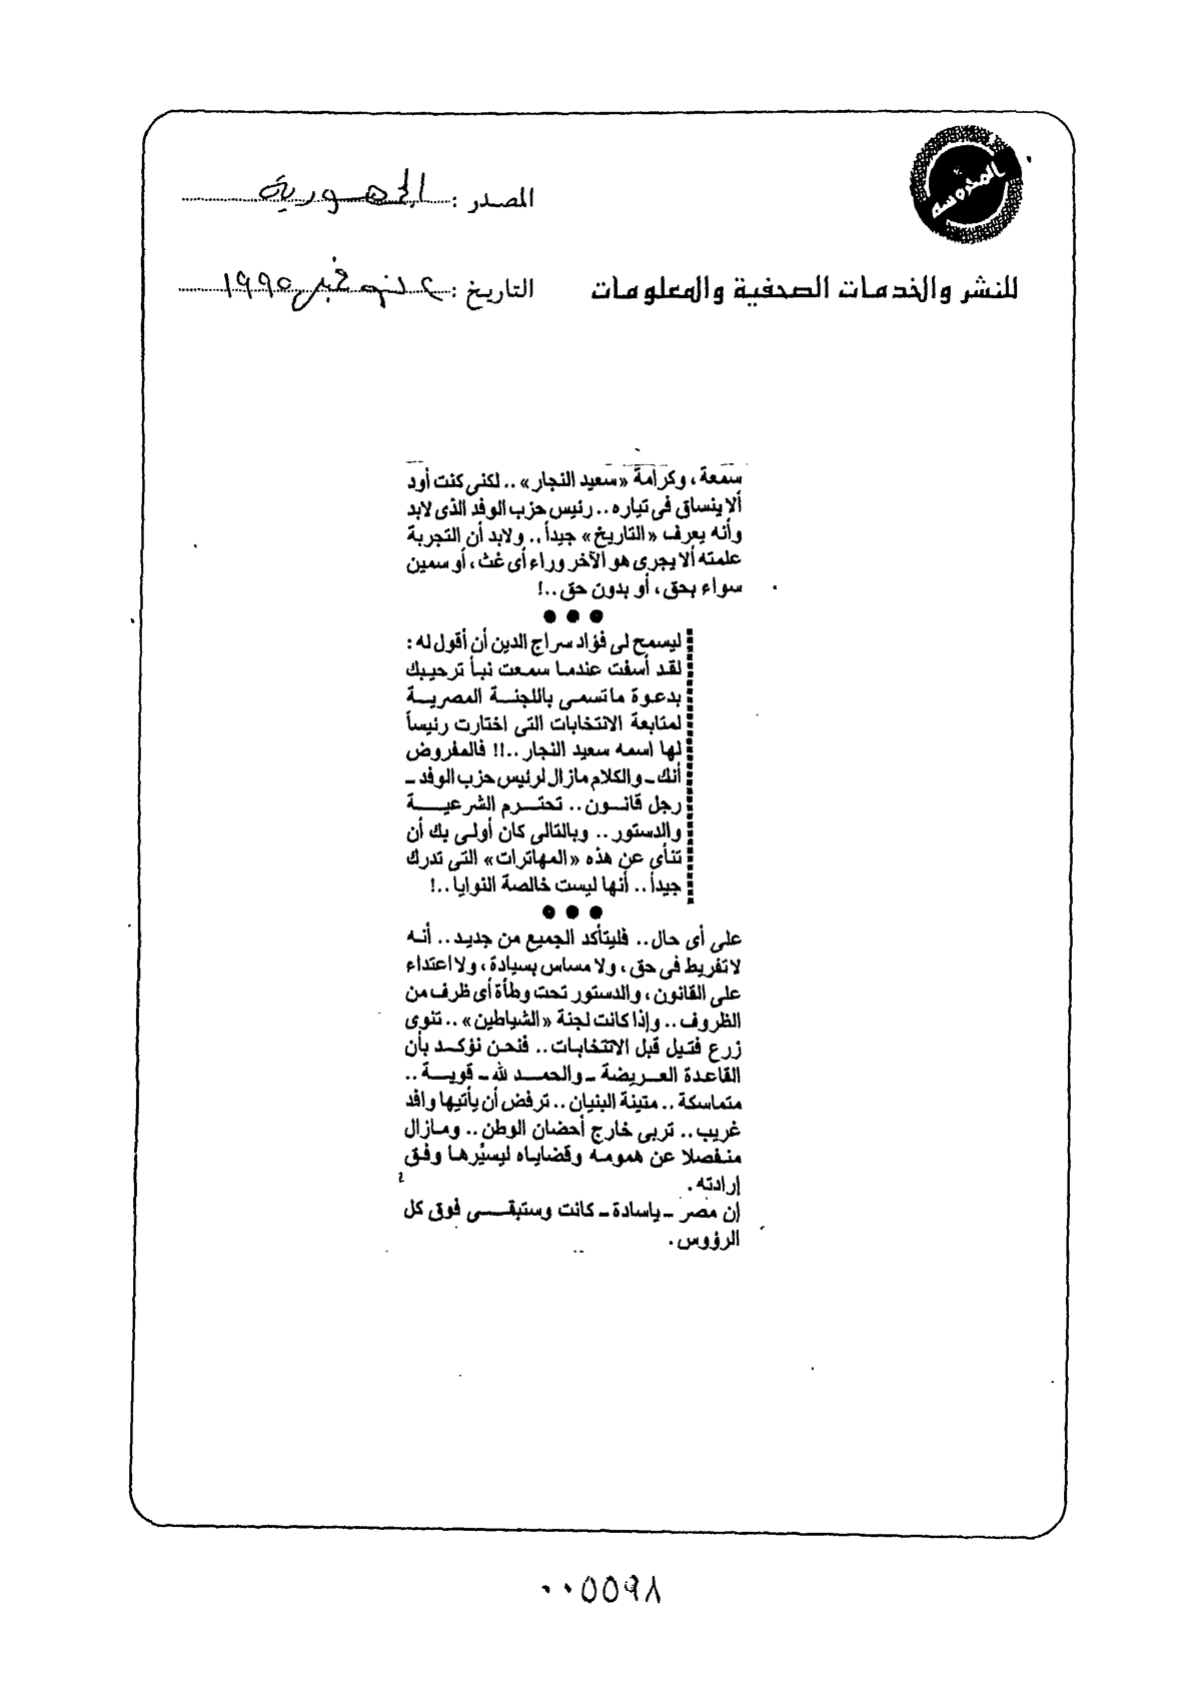 المحروسة
المصدر : الجمهورية
للنشر والخدمات الصحفية والمعلومات
التاريخ : ٢ نوفمبر ١٩٩٥
سمعة ، وكرامة «سعيد النجار» .. لكنى كنت أود
ألا ينساق فى تياره .. رئيس حزب الوفد الذى لابد
وأنه يعرف «التاريخ» جيداً .. ولابد أن التجربة
علمته ألا يجرى هو الآخر وراء أى غث ، أو سمين
سواء بحق ، أو بدون حق ..!
● ● ●
ليسمح لى فؤاد سراج الدين أن أقول له :
لقد أسفت عندما سمعت نبأ ترحيبك
بدعوة ماتسمى باللجنة المصرية
لمتابعة الانتخابات التى اختارت رئيساً
لها اسمه سعيد النجار ..!! فالمفروض
أنك ـ والكلام مازال لرئيس حزب الوفد ـ
رجل قانون .. تحترم الشرعية
والدستور .. وبالتالى كان أولى بك أن
تنأى عن هذه «المهاترات» التى تدرك
جيداً .. أنها ليست خالصة النوايا ..!
● ● ●
على أى حال .. فليتأكد الجميع من جديد .. أنه
لا تفريط فى حق ، ولا مساس بسيادة ، ولا اعتداء
على القانون ، والدستور تحت وطأة أى ظرف من
الظروف .. وإذا كانت لجنة «الشياطين» .. تنوى
زرع فتيل قبل الانتخابات .. فنحن نؤكد بأن
القاعدة العريضة ـ والحمد لله ـ قوية ..
متماسكة .. متينة البنيان .. ترفض أن يأتيها وافد
غريب .. تربى خارج أحضان الوطن .. ومازال
منفصلا عن همومه وقضاياه ليسيُرها وفق
إرادته .
إن مصر ـ ياسادة ـ كانت وستبقى فوق كل
الرؤوس .
٠٠٥٥٩٨